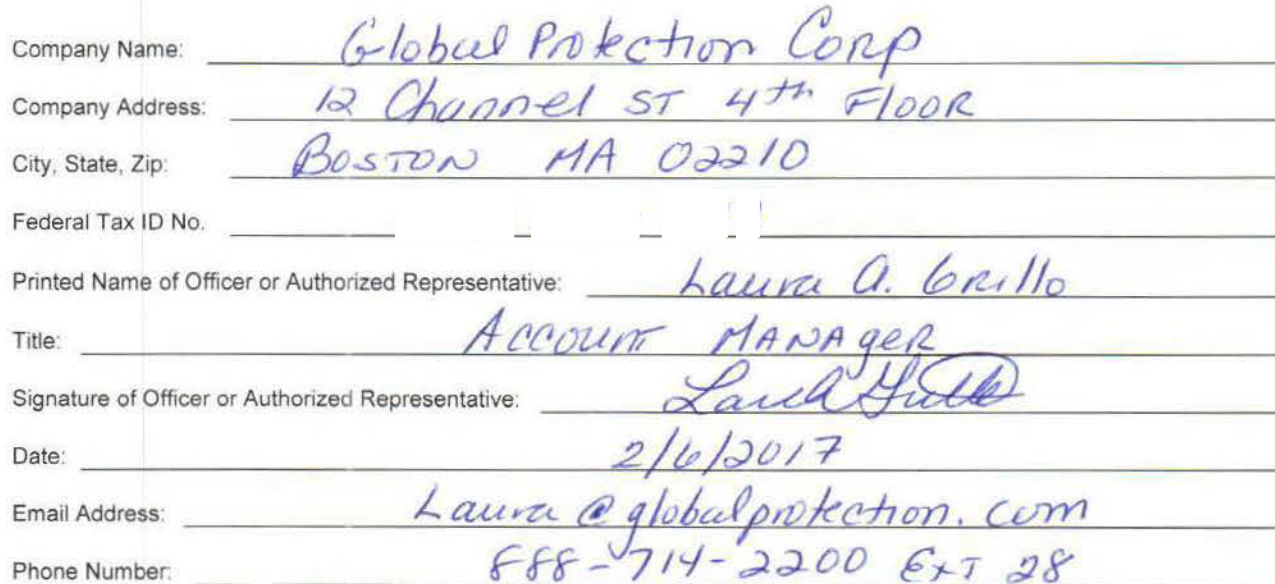 Company Name: Global Protection Corp
Company Address: 12 Channel ST 4th Floor
City, State, Zip: BOSTON MA 02210
Federal Tax ID No.
Printed Name of Officer or Authorized Representative: Laura A. Grillo
Title: Account Manager
Signature of Officer or Authorized Representative:
Date: 2/6/2017
Email Address: Laura@globalprotection.com
Phone Number: 888-714-2200 Ext 28